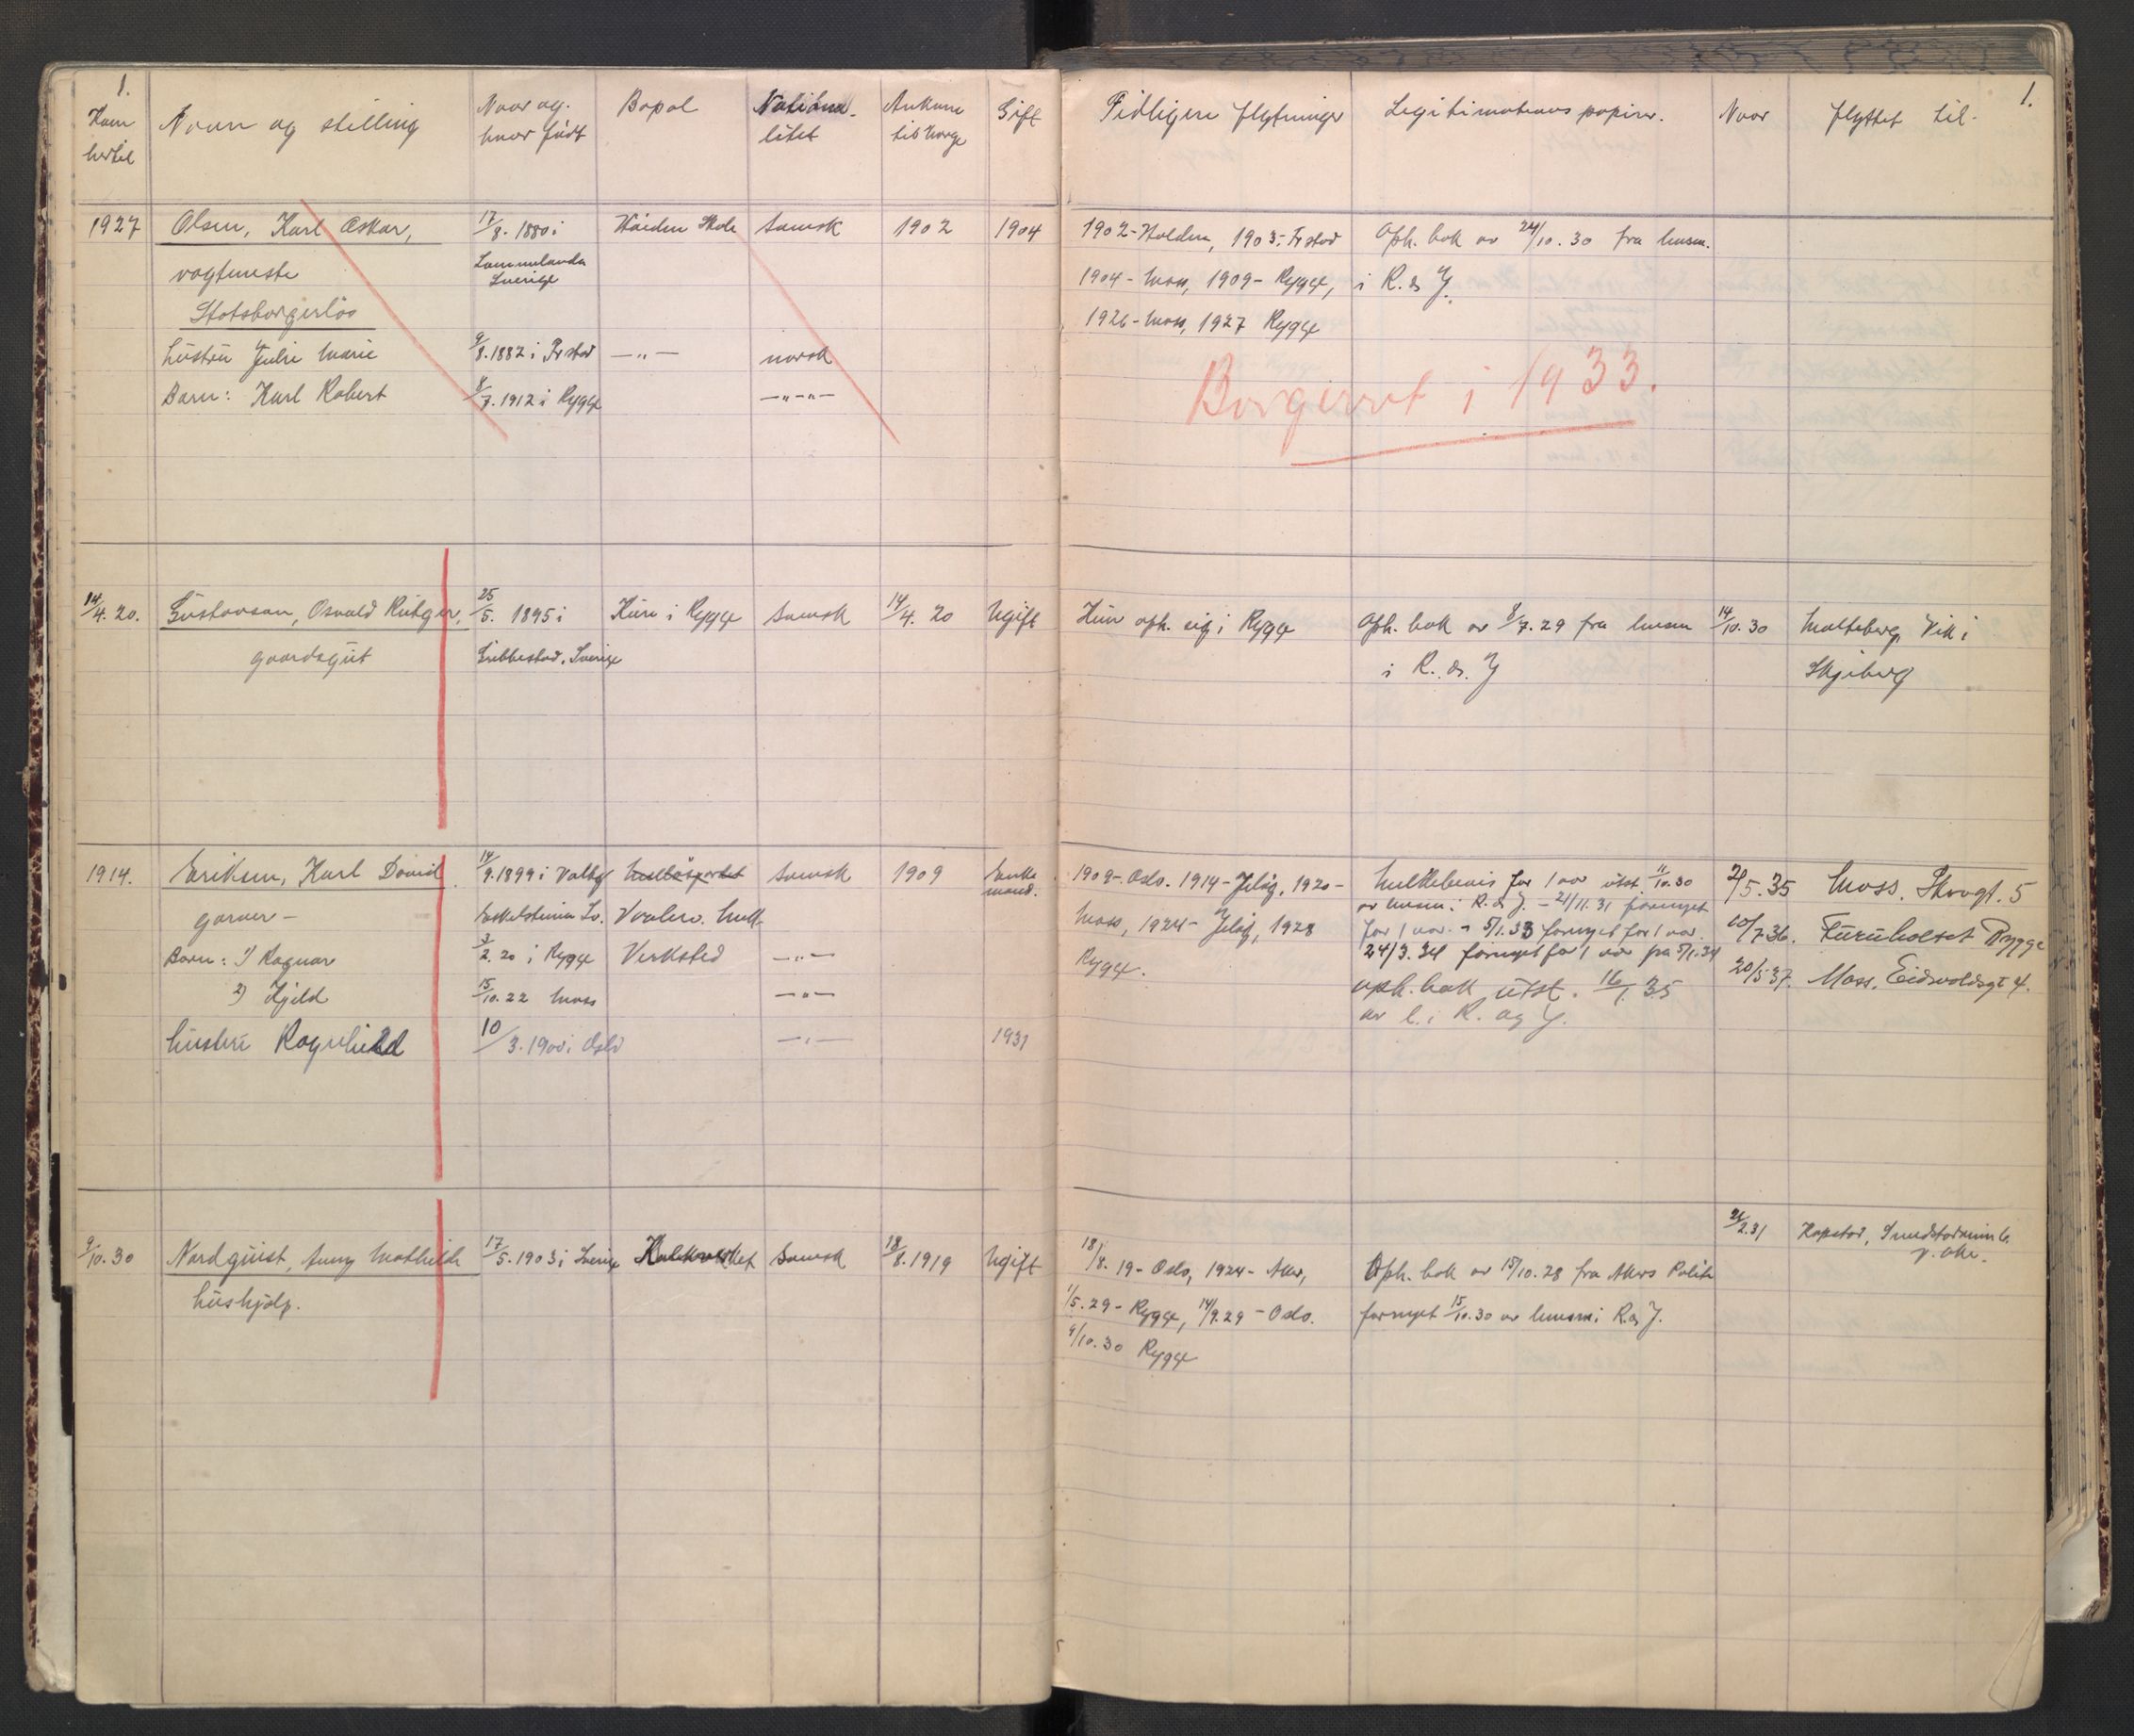 1.
1.
Kom hertil
Navn og stilling
Naar og hvor født
Bopæl
Nationalitet
Ankom til Norge
Gift
Tidligere flytninger
Legitimations papirer.
Naar
flyttet til-
1927
Olsen, Karl Oskar,
17/8. 1880 i
Skole
svensk
1902
1904
1902- Halden, 1903- Fr.stad
Oph. bok av 24/10. 30 fra lensm.
vogtmester
Sverige
1904- Moss, 1909- Rygge,
i R. & J.
Statsborgerløs
1926- Moss, 1927 Rygge
hüstrü Julie Marie
9/8. 1882 i Fr.stad
—"—
norsk
Barn: Karl Robert
8/7. 1912 i Rygge
—"—"—
Borgerret i 1933.
14/4. 20.
Güstavson, Osvald Rütger,
25/5. 1895 i
Rygge
svensk
14/4. 20
Ugift
Kün oph. sig i Rygge
Oph. bok av 8/7. 29 fra lensm
14/10. 30
Vik i
gaardsgüt
Grebbestad. Sverige
i R. & J
Skjeberg
1914.
Eriksen, Karl David
14/9. 1899 i
svensk
1909
Enkemand.
1909- Oslo. 1914- Jeløy, 1920-
for 1 aar ütst. 11/10. 30
2/5. 35
Moss. Skovgt. 5
garver -
Eskilstuna Sv.
av lensm i R. & J. - 21/11. 31 fornyet
Moss, 1924- Jeløy, 1928
for 1 aar. - 5/1. 33 fornyet for 1 aar.
10/7. 36.
Rygge
Barn: 1) Ragnar
3/2. 20 i Rygge
Verksted
—"—
Rygge.
24/3. 34 fornyet for 1 aar fra 5/1. 34
20/5 37.
Moss. Eidsvoldsgt 4.
2) Kjeld
15/10. 22 Moss
—"—
oph. bok ütst. 16/1. 35
av l. i R. og J.
hüstrü Ragnhild
10/3. 1900 i Oslo
—"—
1931
9/10. 30
Nordqüist, Anny Mathilde
17/5. 1903 i Sverige
svensk
18/8. 1919
Ugift
18/8. 19- Oslo, 1924- Aker,
Oph. bok av 15/10. 28 fra Akers Politi
2.31
hüshjelp.
1/5. 29- Rygge, 14/9. 29- Oslo.
fornyet 15/10. 30 av lensm i R. & J.
9/10. 30 Rygge